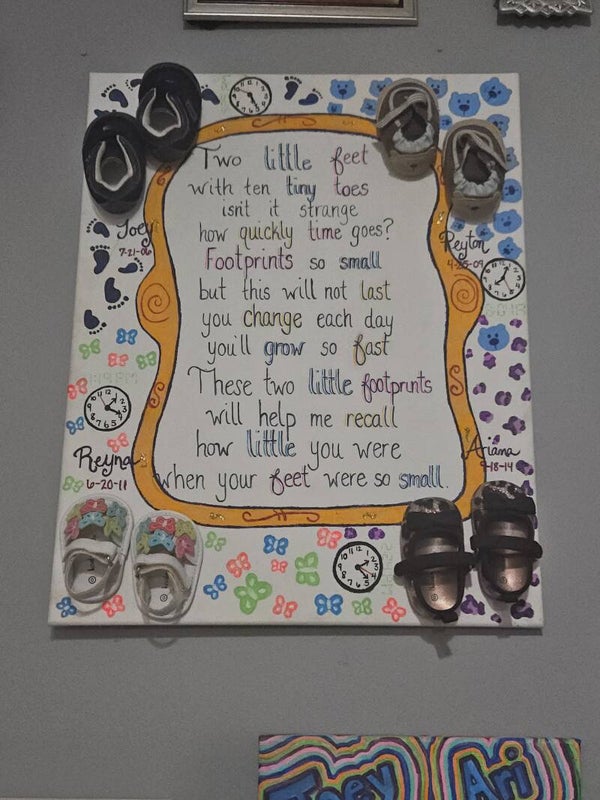 Two little feet
with ten tiny toes
isnt it strange
how quickly time goes?
Footprints so small
but this will not last
you change each day
you'll grow so fast
These two little footprints
will help me recall
how little you were
when your feet were so small.
Joey
7-21-06
Peyton
Reyna
6-20-11
Ariana
9-18-14
Joey Ari